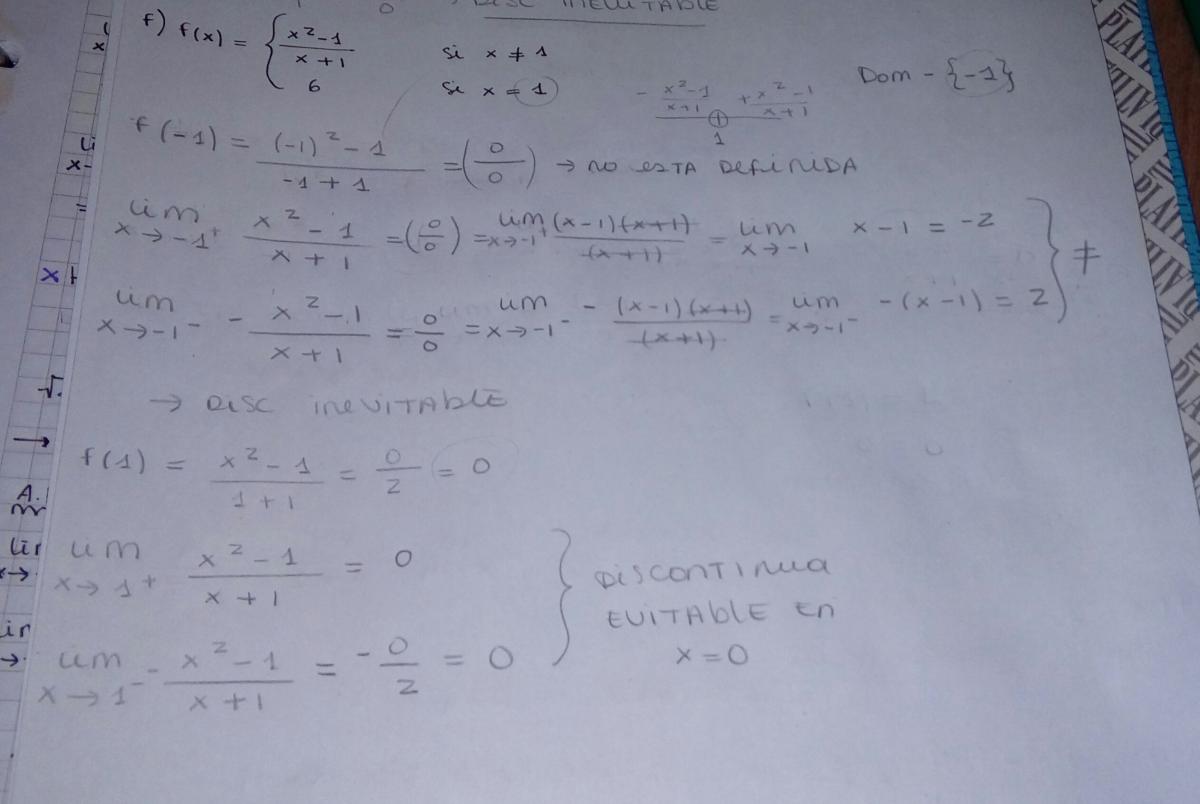 DISC INEVITABLE
f) f(x) = { x²-1 / x+1 si x ≠ 1
6 si x = 1
Dom - {-1}
- x²-1 / x+1 + x²-1 / x+1
1
f(-1) = (-1)²-1 / -1+1 = (0/0) → no esta definida
lim x→-1⁺ x²-1 / x+1 = (0/0) = lim x→-1⁺ (x-1)(x+1) / (x+1) = lim x→-1 x-1 = -2 } ≠
lim x→-1⁻ - x²-1 / x+1 = 0/0 = lim x→-1⁻ - (x-1)(x+1) / (x+1) = lim x→-1⁻ -(x-1) = 2
→ DISC INEVITABLE
f(1) = x²-1 / 1+1 = 0/2 = 0
lim x→1⁺ x²-1 / x+1 = 0
lim x→1⁻ - x²-1 / x+1 = -0/2 = 0
} DISCONTINUA
EVITABLE En
x=0
PLAN